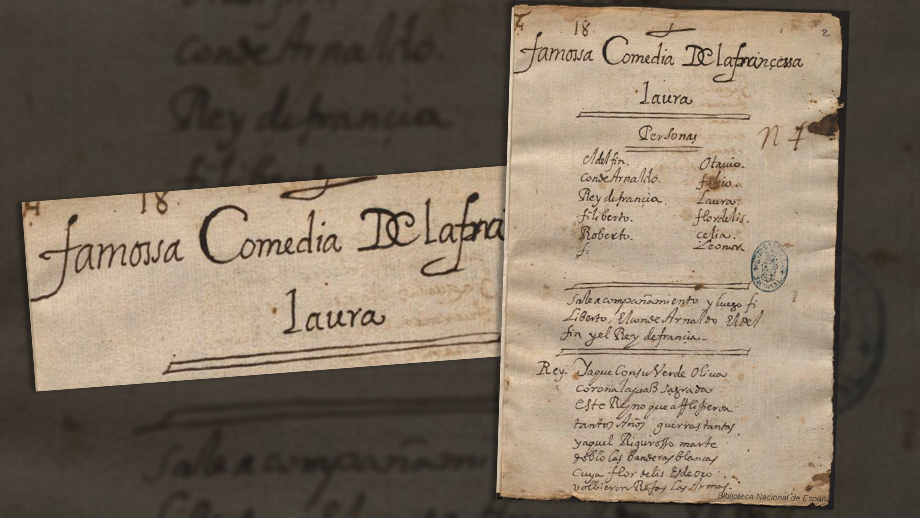 18
2
famossa Comedia De lafrançessa
laura
Personas
n 7
el delfin. Otavio.
conde Arnaldo. fabio.
Rey de francia. Laura.
filiberto. flordelis.
Roberto. celia.
Leonor
Sale acompañamiento y luego fi
liberto, el conde Arnaldo el del
fin y el Rey de francia.
Rey. Ya que con su Verde Oliva
corona la paz sagrada
este Reyno que afligieron
tantos Años guerras tantas
y aquel Riguroso marte
doblo las banderas blancas
cuya flor de lis de oro
volbieron Rojas las Armas.
Biblioteca Nacional de España
18
famossa Comedia De lafran
laura
conde Arnaldo.
Rey de francia